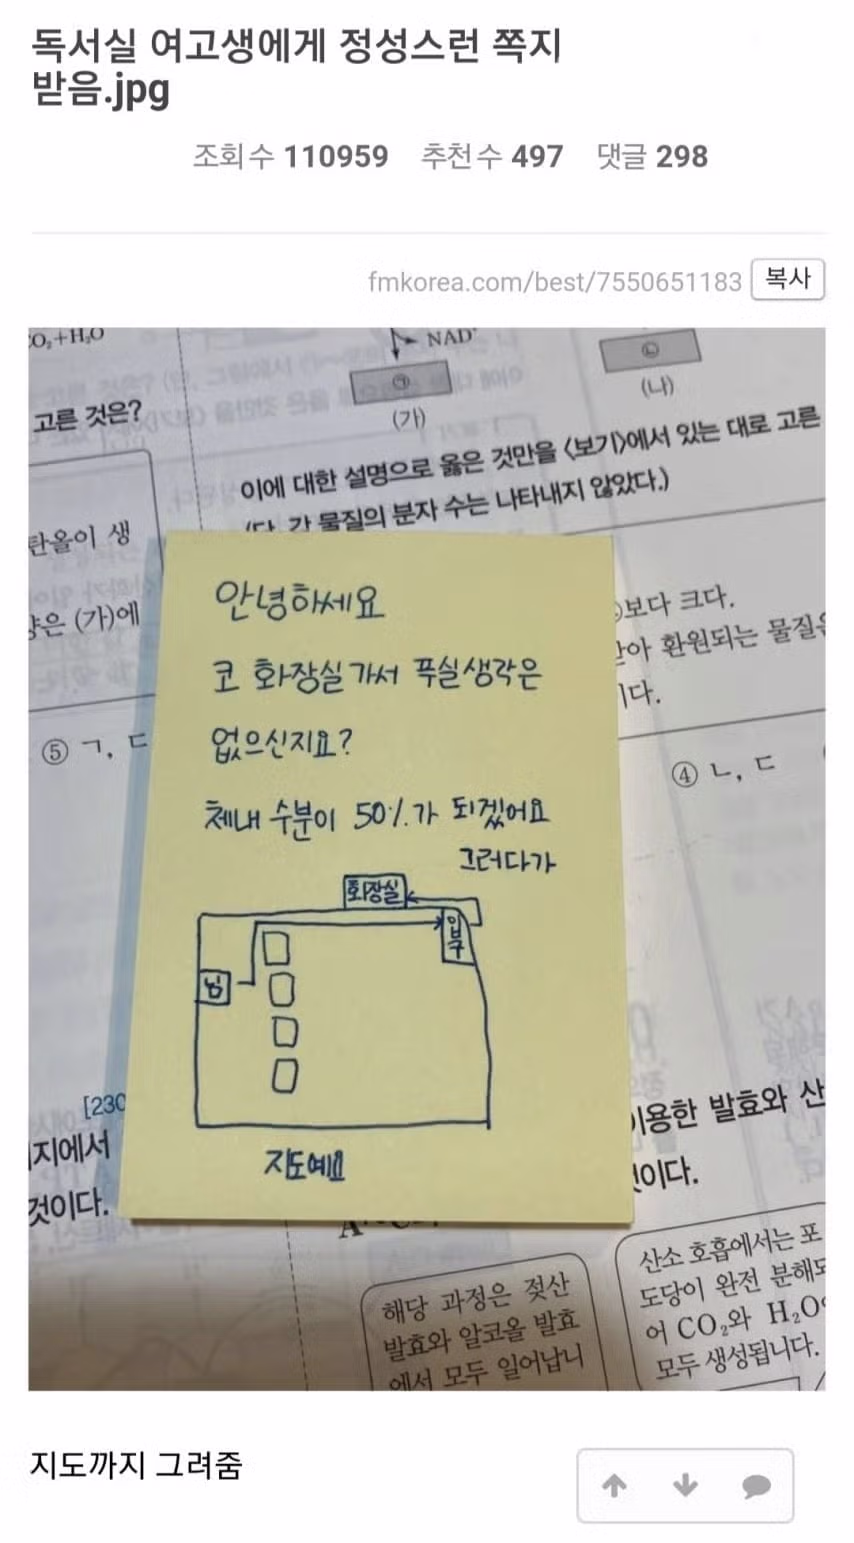 독서실 여고생에게 정성스런 쪽지
받음.jpg
조회수 110959 추천수 497 댓글 298
fmkorea.com/best/7550651183 복사
CO₂+H₂O
NAD⁺
㉠
㉡
(가)
(나)
고른 것은?
이에 대한 설명으로 옳은 것만을 <보기>에서 있는 대로 고른
(단, 각 물질의 분자 수는 나타내지 않았다.)
탄올이 생
은 (가)에
⑤ ㄱ, ㄷ
보다 크다.
환원되는 물질은
이다.
④ ㄴ, ㄷ
안녕하세요
코 화장실가서 푸실생각은
없으신지요?
체내 수분이 50%가 되겠어요
그러다가
화장실
입구
님
지도예요
[230
지에서
것이다.
이용한 발효와 산
것이다.
해당 과정은 젖산
발효와 알코올 발효
에서 모두 일어납니
산소 호흡에서는 포
도당이 완전 분해되
어 CO₂와 H₂O
모두 생성됩니다.
지도까지 그려줌